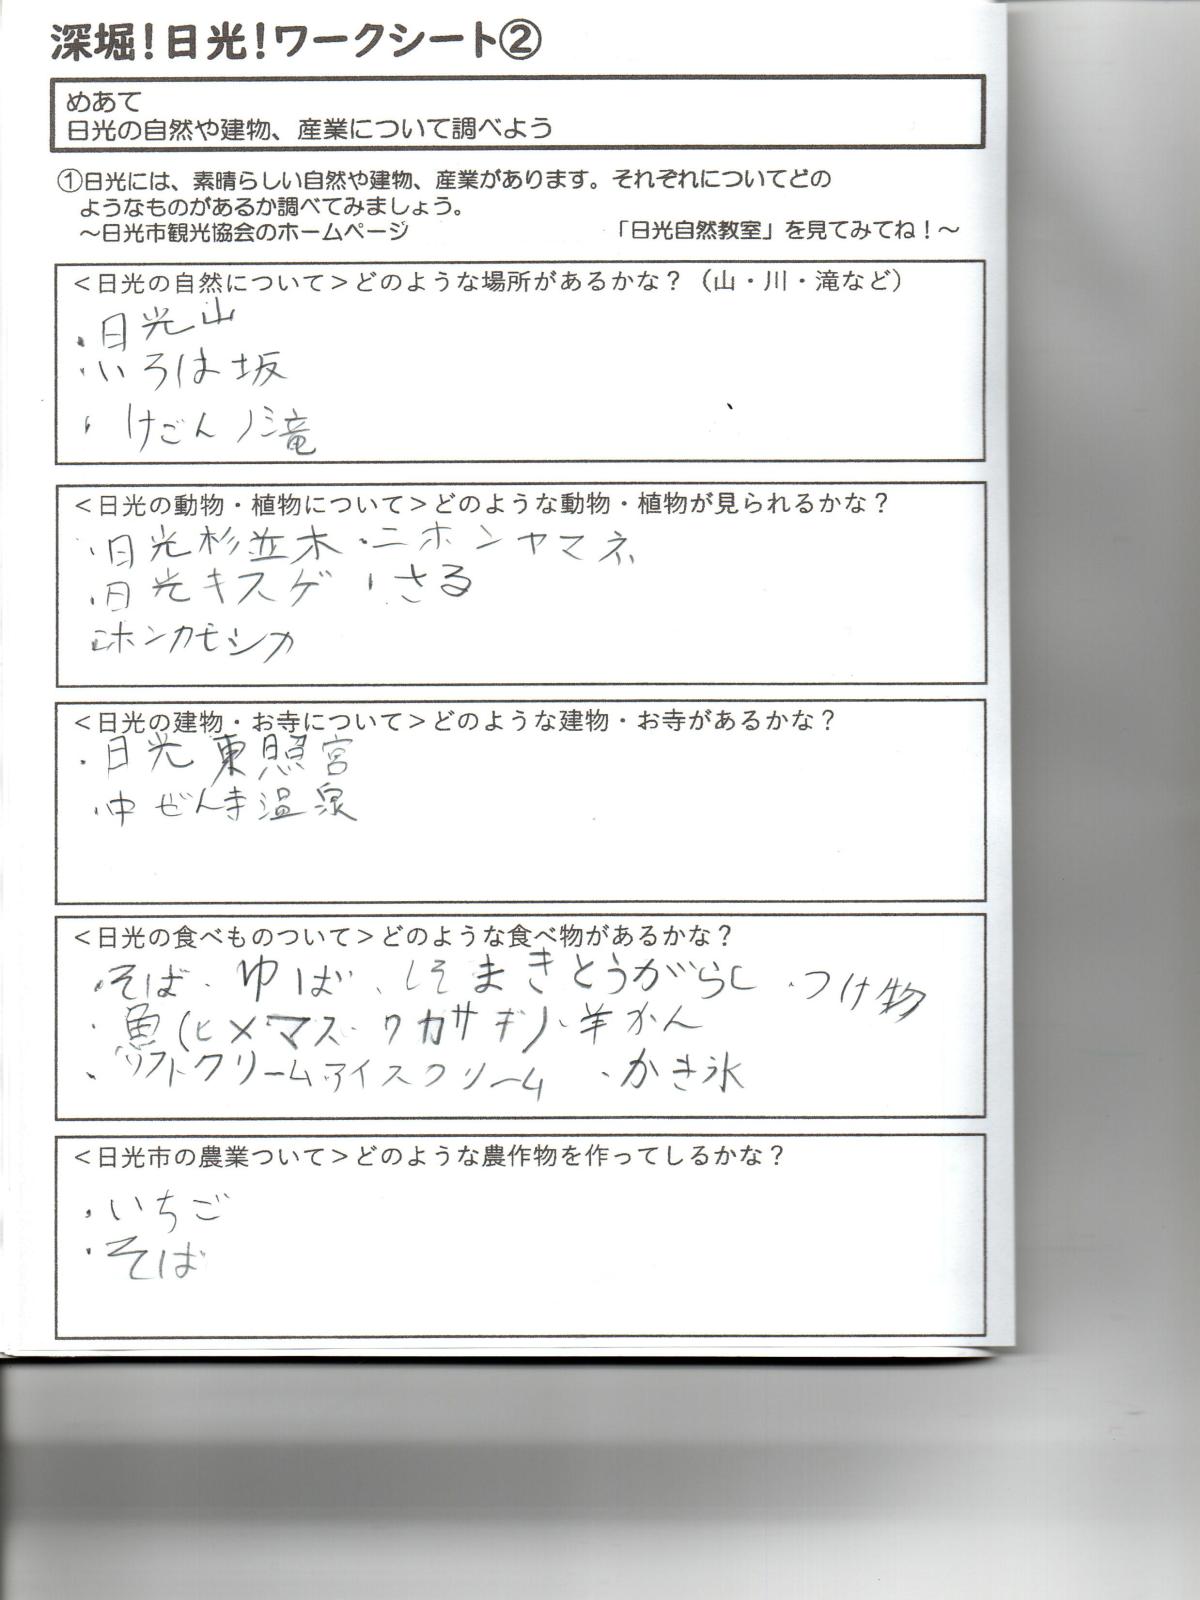 深堀！日光！ワークシート②
めあて
日光の自然や建物、産業について調べよう
①日光には、素晴らしい自然や建物、産業があります。それぞれについてどの
ようなものがあるか調べてみましょう。
～日光市観光協会のホームページ　「日光自然教室」を見てみてね！～
＜日光の自然について＞どのような場所があるかな？（山・川・滝など）
・日光山
・いろは坂
・けごんノ滝
＜日光の動物・植物について＞どのような動物・植物が見られるかな？
・日光杉並木・ニホンヤマネ
・日光キスゲ ・さる
ニホンカモシカ
＜日光の建物・お寺について＞どのような建物・お寺があるかな？
・日光東照宮
・中ぜん寺温泉
＜日光の食べものついて＞どのような食べ物があるかな？
・そば・ゆば、しそまきとうがらし・つけ物
・魚(ヒメマス・ワカサギ)・羊かん
・ソフトクリームアイスクリーム ・かき氷
＜日光市の農業ついて＞どのような農作物を作ってしるかな？
・いちご
・そば